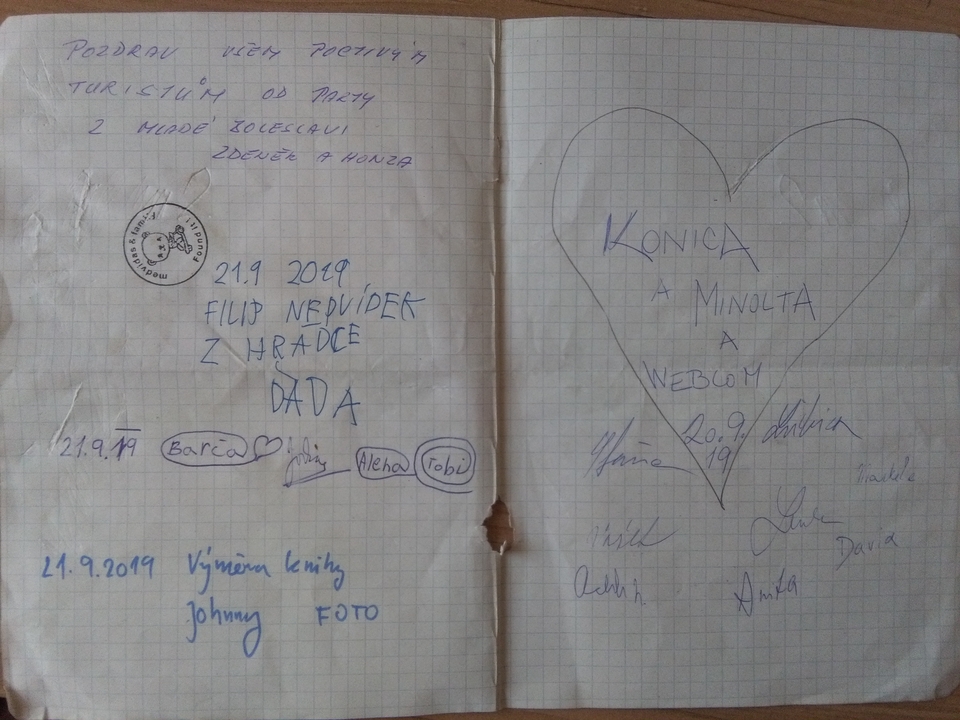 POZDRAV VŠEM POCTIVÝM
TURISTŮM OD PARTY
Z MLADÉ BOLESLAVI
ZDENĚK A HONZA
medvidas & family
Found it!
21.9 2019
FILIP NEDVÍDEK
Z HRÁDCE
DÁDA
21.9.19 Barča Alena Tobi
21.9.2019 Výměna knihy
Johnny FOTO
KONICA
A MINOLTA
A
WEBCOM
20.9. Lubica
19
Lenka
David
Anika